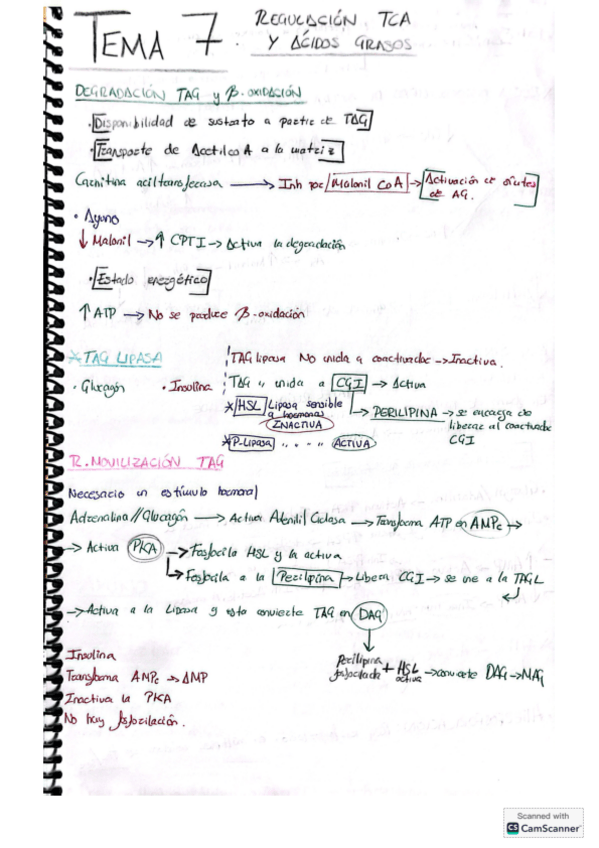 TEMA 7. REGULACIÓN TCA
Y ÁCIDOS GRASOS
DEGRADACIÓN TAG y β-OXIDACIÓN
· Disponibilidad de sustrato a partir de TAG
· Transporte de Aacilcoa A a la matriz
Carnitina aciltransferasa → Inh por Malonil CoA → Activación de síntesis de AG.
• Ayuno
↓ Malonil → ↑ CPTI → Activa la degradación
· Estado energético
↑ ATP → No se produce β-oxidación
* TAG LIPASA
· Glucagón · Insulina
TAG lipasa No unida a coactivador → Inactiva.
TAG " unida a CGI → Activa
→ PERILIPINA → se encarga de liberar al coactivador CGI
* HSL Lipasa sensible a hormonas INACTIVA
* P-Lipasa " " " " ACTIVA
R. MOVILIZACIÓN TAG
Necesario un estímulo hormonal
Adrenalina // Glucagón → Activar Adenilil Ciclasa → Transforma ATP en AMPc →
→ Activa PKA → Fosforila HSL y la activa
→ Fosforila a la Perilipina → Libera CGI → se une a la TAGL
→ Activa a la Lipasa y esta convierte TAG en DAG
Perilipina fosforilada + HSL activa → convierte DAG → MAG
Insulina
Transforma AMPc → AMP
Inactiva la PKA
No hay fosforilación.
Scanned with
CS CamScanner